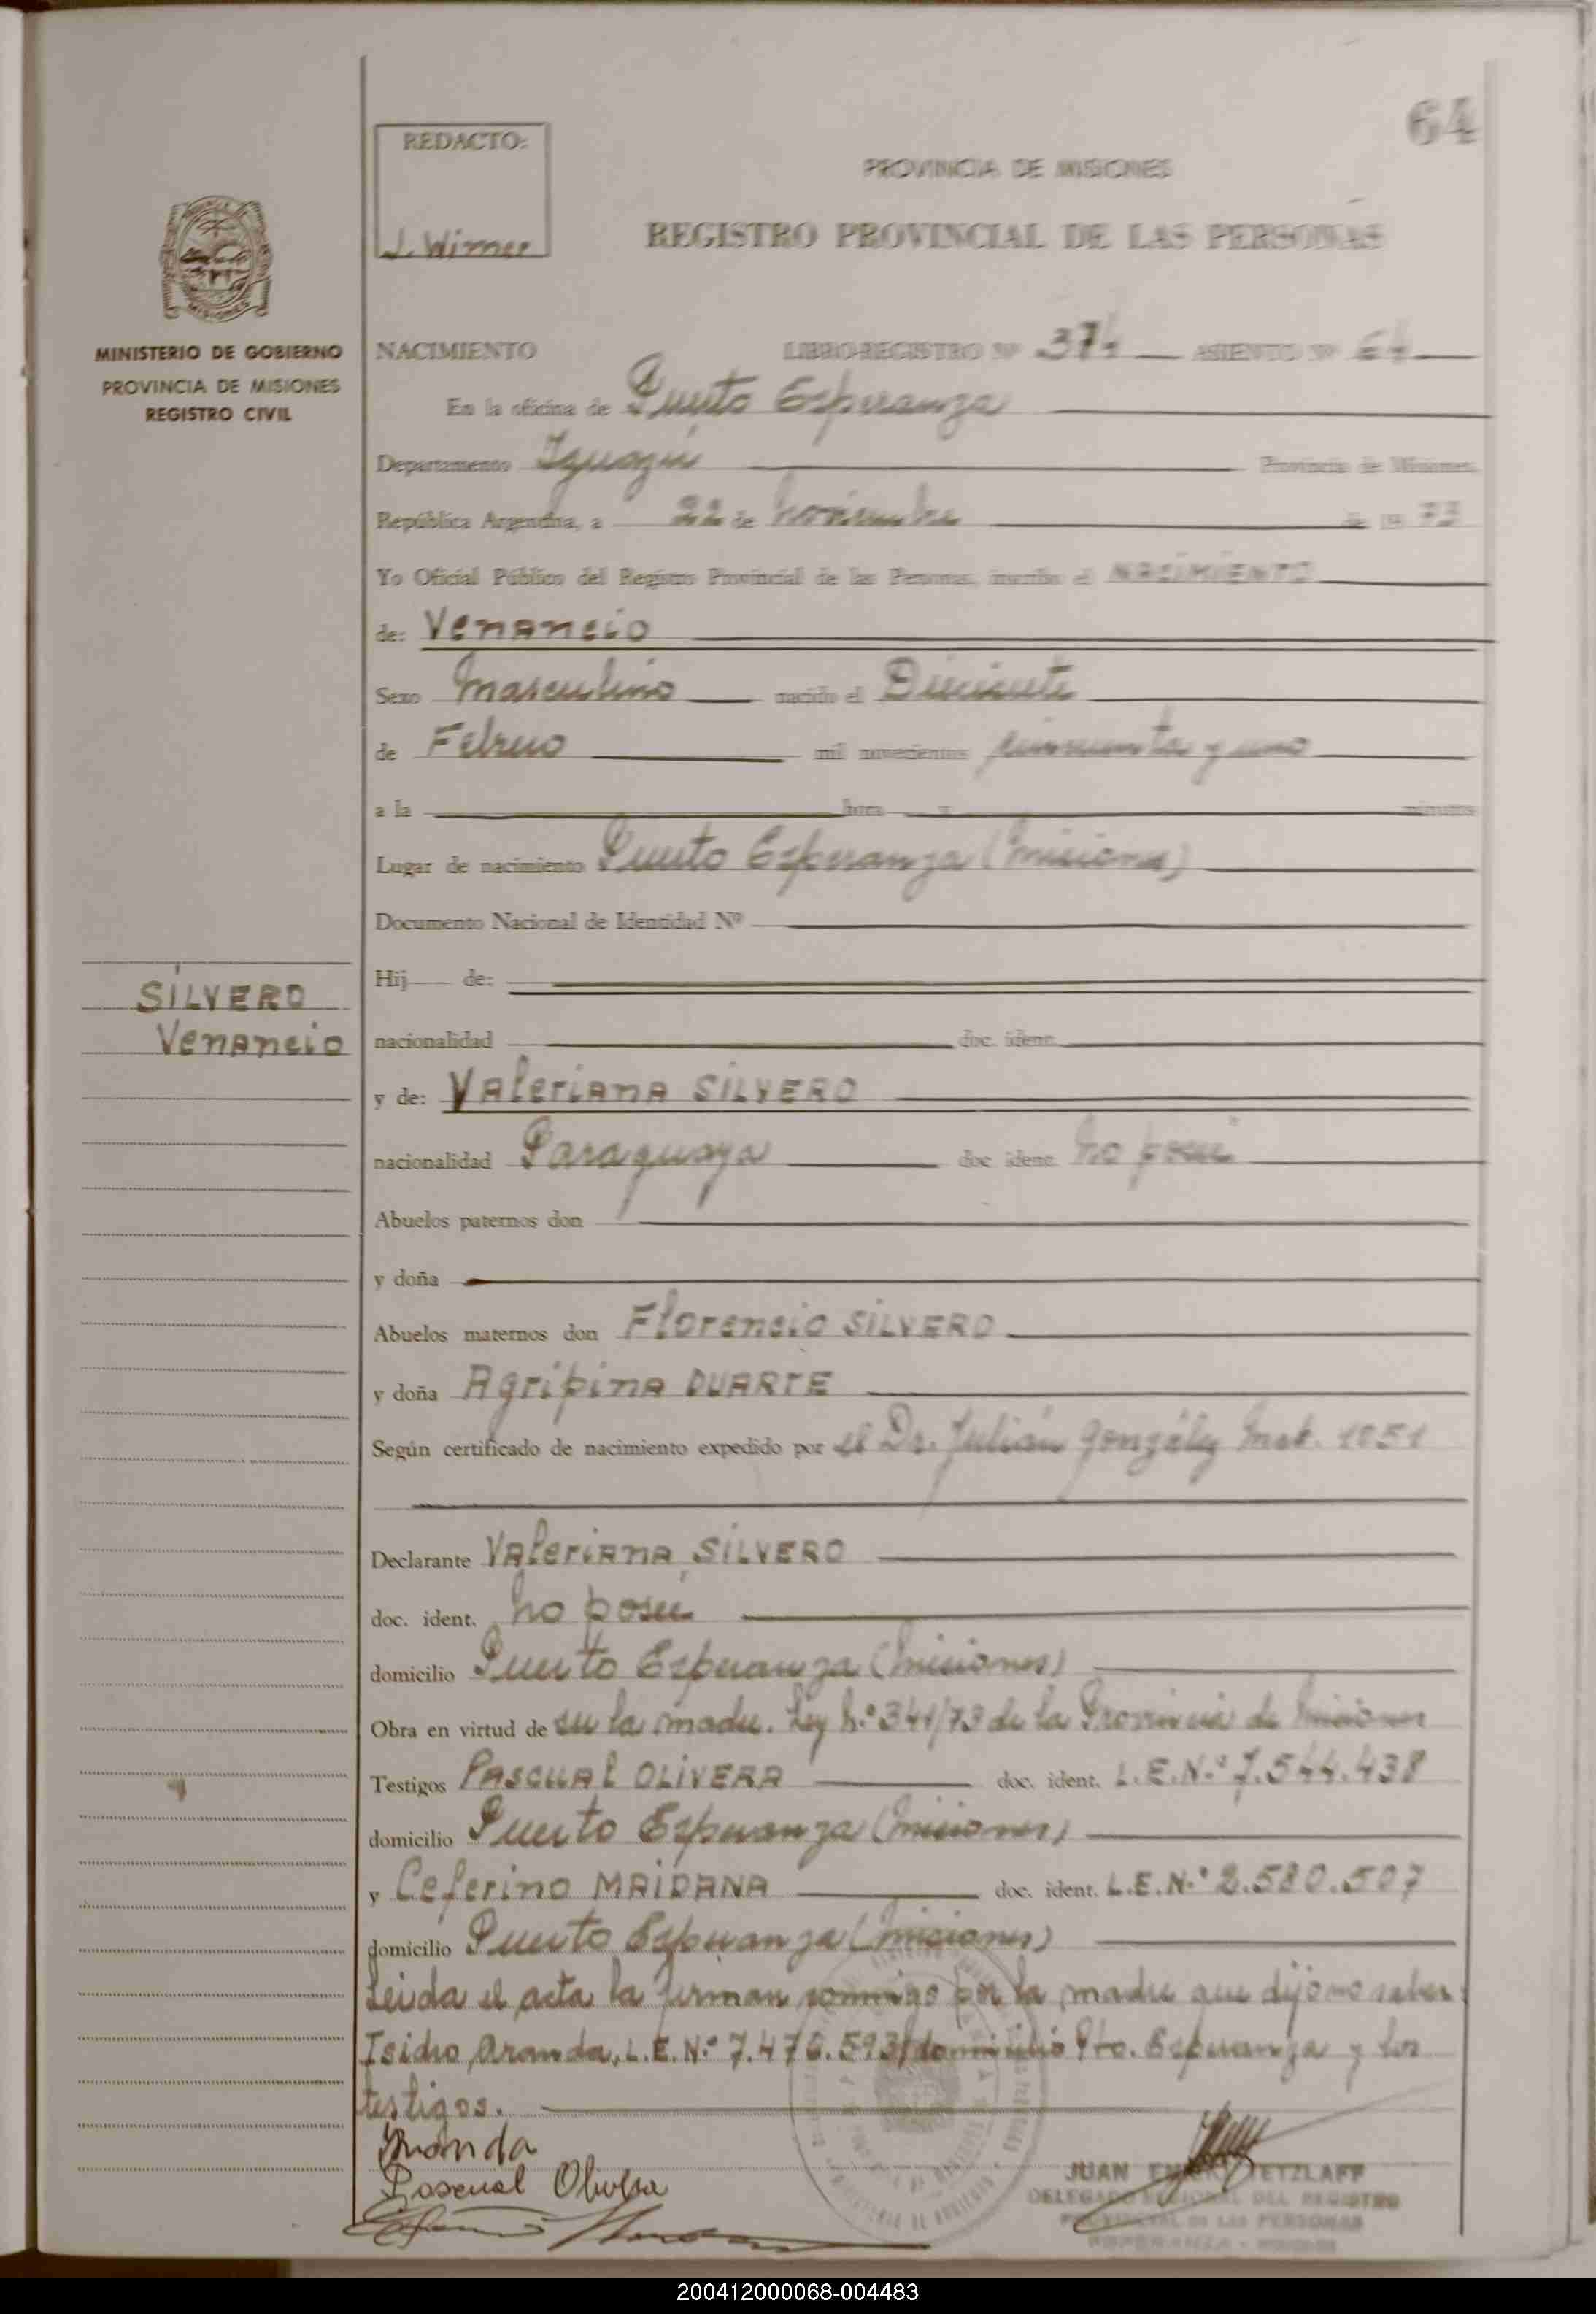 64
REDACTO:
J. Wirner
PROVINCIA DE MISIONES
REGISTRO PROVINCIAL DE LAS PERSONAS
MINISTERIO DE GOBIERNO
PROVINCIA DE MISIONES
REGISTRO CIVIL
NACIMIENTO LIBRO-REGISTRO Nº 374 ASIENTO Nº 64
En la oficina de Puerto Esperanza
Departamento Iguazú Provincia de Misiones,
República Argentina, a 22 de noviembre de 19 73
Yo Oficial Público del Registro Provincial de las Personas, inscribo el NACIMIENTO
de: Venancio
Sexo masculino nacido el Diecisiete
de Febrero mil novecientos cincuenta y uno
a la hora y minutos
Lugar de nacimiento Puerto Esperanza (Misiones)
Documento Nacional de Identidad Nº
Hij de:
SILVERO
Venancio
nacionalidad doc. ident.
y de: Valeriana SILVERO
nacionalidad Paraguaya doc. ident. no posee
Abuelos paternos don
y doña
Abuelos maternos don Florencio SILVERO
y doña Agripina DUARTE
Según certificado de nacimiento expedido por el Dr. Julián González Mat. 1051
Declarante Valeriana SILVERO
doc. ident. no posee
domicilio Puerto Esperanza (Misiones)
Obra en virtud de ser la madre. Ley N.º 341/73 de la Provincia de Misiones
Testigos PASCUAL OLIVERA doc. ident. L.E.N.º 7.544.438
domicilio Puerto Esperanza (Misiones)
y Ceferino MAIDANA doc. ident. L.E.N.º 2.580.507
domicilio Puerto Esperanza (Misiones)
Leida el acta la firman conmigo por la madre que dijo no saber
Isidro Aranda, L.E.N.º 7.476.593, domicilio Pto. Esperanza y los
testigos.
Aranda
Pascual Olivera
JUAN TETZLAFF
DELEGADO REGIONAL DEL REGISTRO
PROVINCIAL DE LAS PERSONAS
ESPERANZA - MISIONES
200412000068-004483